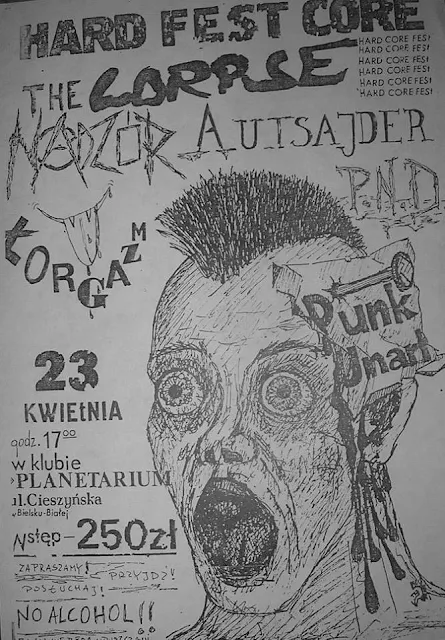 HARD FEST CORE
HARD CORE FEST
HARD CORE FEST
HARD CORE FEST
HARD CORE FEST
HARD CORE FEST
HARD CORE FEST
THE CORPSE
NADZÓR
AUTSAJDER
P.N.D.
ŁORGAZM
Punk
Unarł
23
KWIETNIA
godz. 17⁰⁰
w klubie
PLANETARIUM
ul. Cieszyńska
w Bielsku-Białej
Wstęp - 250zł
ZAPRASZAMY!
PRZYJDŹ!
POSŁUCHAJ!
NO ALCOHOL!!